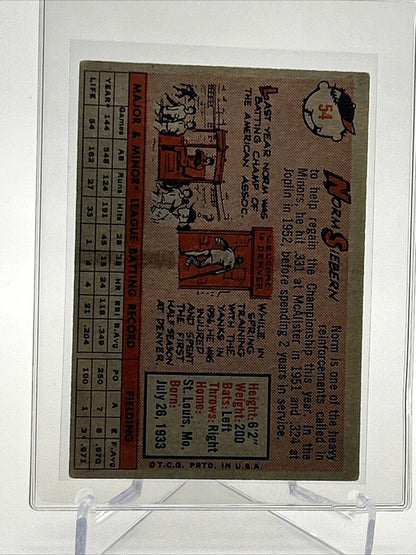 54
NORM SIEBERN
Norm is one of the heavy
reinforcements called in
to help regain the Championship this year. In the
Minors, he hit .331 at McAlister in 1951 and .324 at
Joplin in 1952, before spending 2 years in service.
LAST YEAR NORM WAS
BATTING CHAMP OF
THE AMERICAN ASSOC.
WELCOME
TO DENVER
WHILE IN
SPRING
TRAINING
WITH THE
YANKS IN
1956, HE WAS
INJURED
AND SPENT
THE FIRST
HALF SEASON
AT DENVER.
Height: 6'2"
Weight: 200
Bats: Left
Throws: Right
Home:
St. Louis, Mo.
Born:
July 26, 1933
MAJOR & MINOR LEAGUE BATTING RECORD
FIELDING
Games AB Runs Hits 2B 3B HR RBI B.Avg PO A E F.Avg
YEAR 144 548 124 191 45 15 24 118 .349 250 7 8 .970
LIFE 54 162 27 33 1 4 4 21 .204 100 1 3 .971
©T.C.G. PRTD. IN U.S.A.